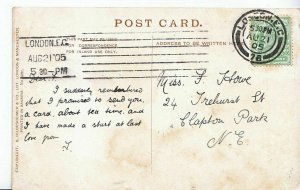 POST CARD.
THIS PART MAY BE USED
FOR CORRESPONDENCE
FOR INLAND USE ONLY.
ADDRESS TO BE WRITTEN H
LONDON.E.C.
AUG 21 05
5.30-PM
LONDON.E.C.
5.30PM
AU 21
05
76
Dear
I suddenly remembered
that I promised to send you
a card, about tea time, and
I have made a start at last
love from
Miss. F. Howe
24 Trehurst St
Clapton Park
N.E.